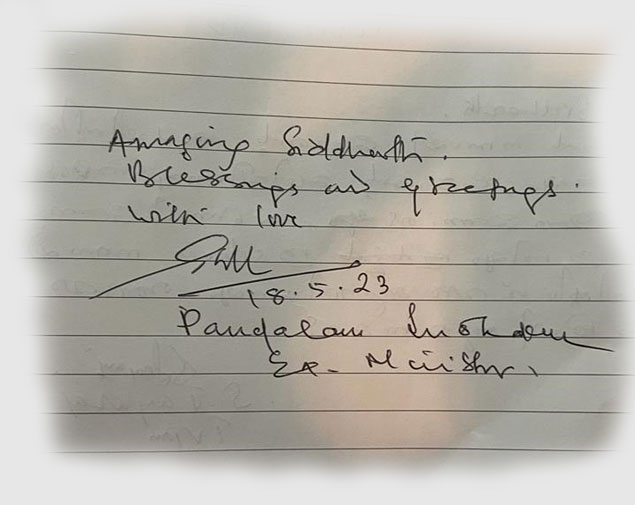 Amazing Siddharth.
Blessings and greetings.
with love
18.5.23
Pandalam Sudhakaran
Ex-Minister.